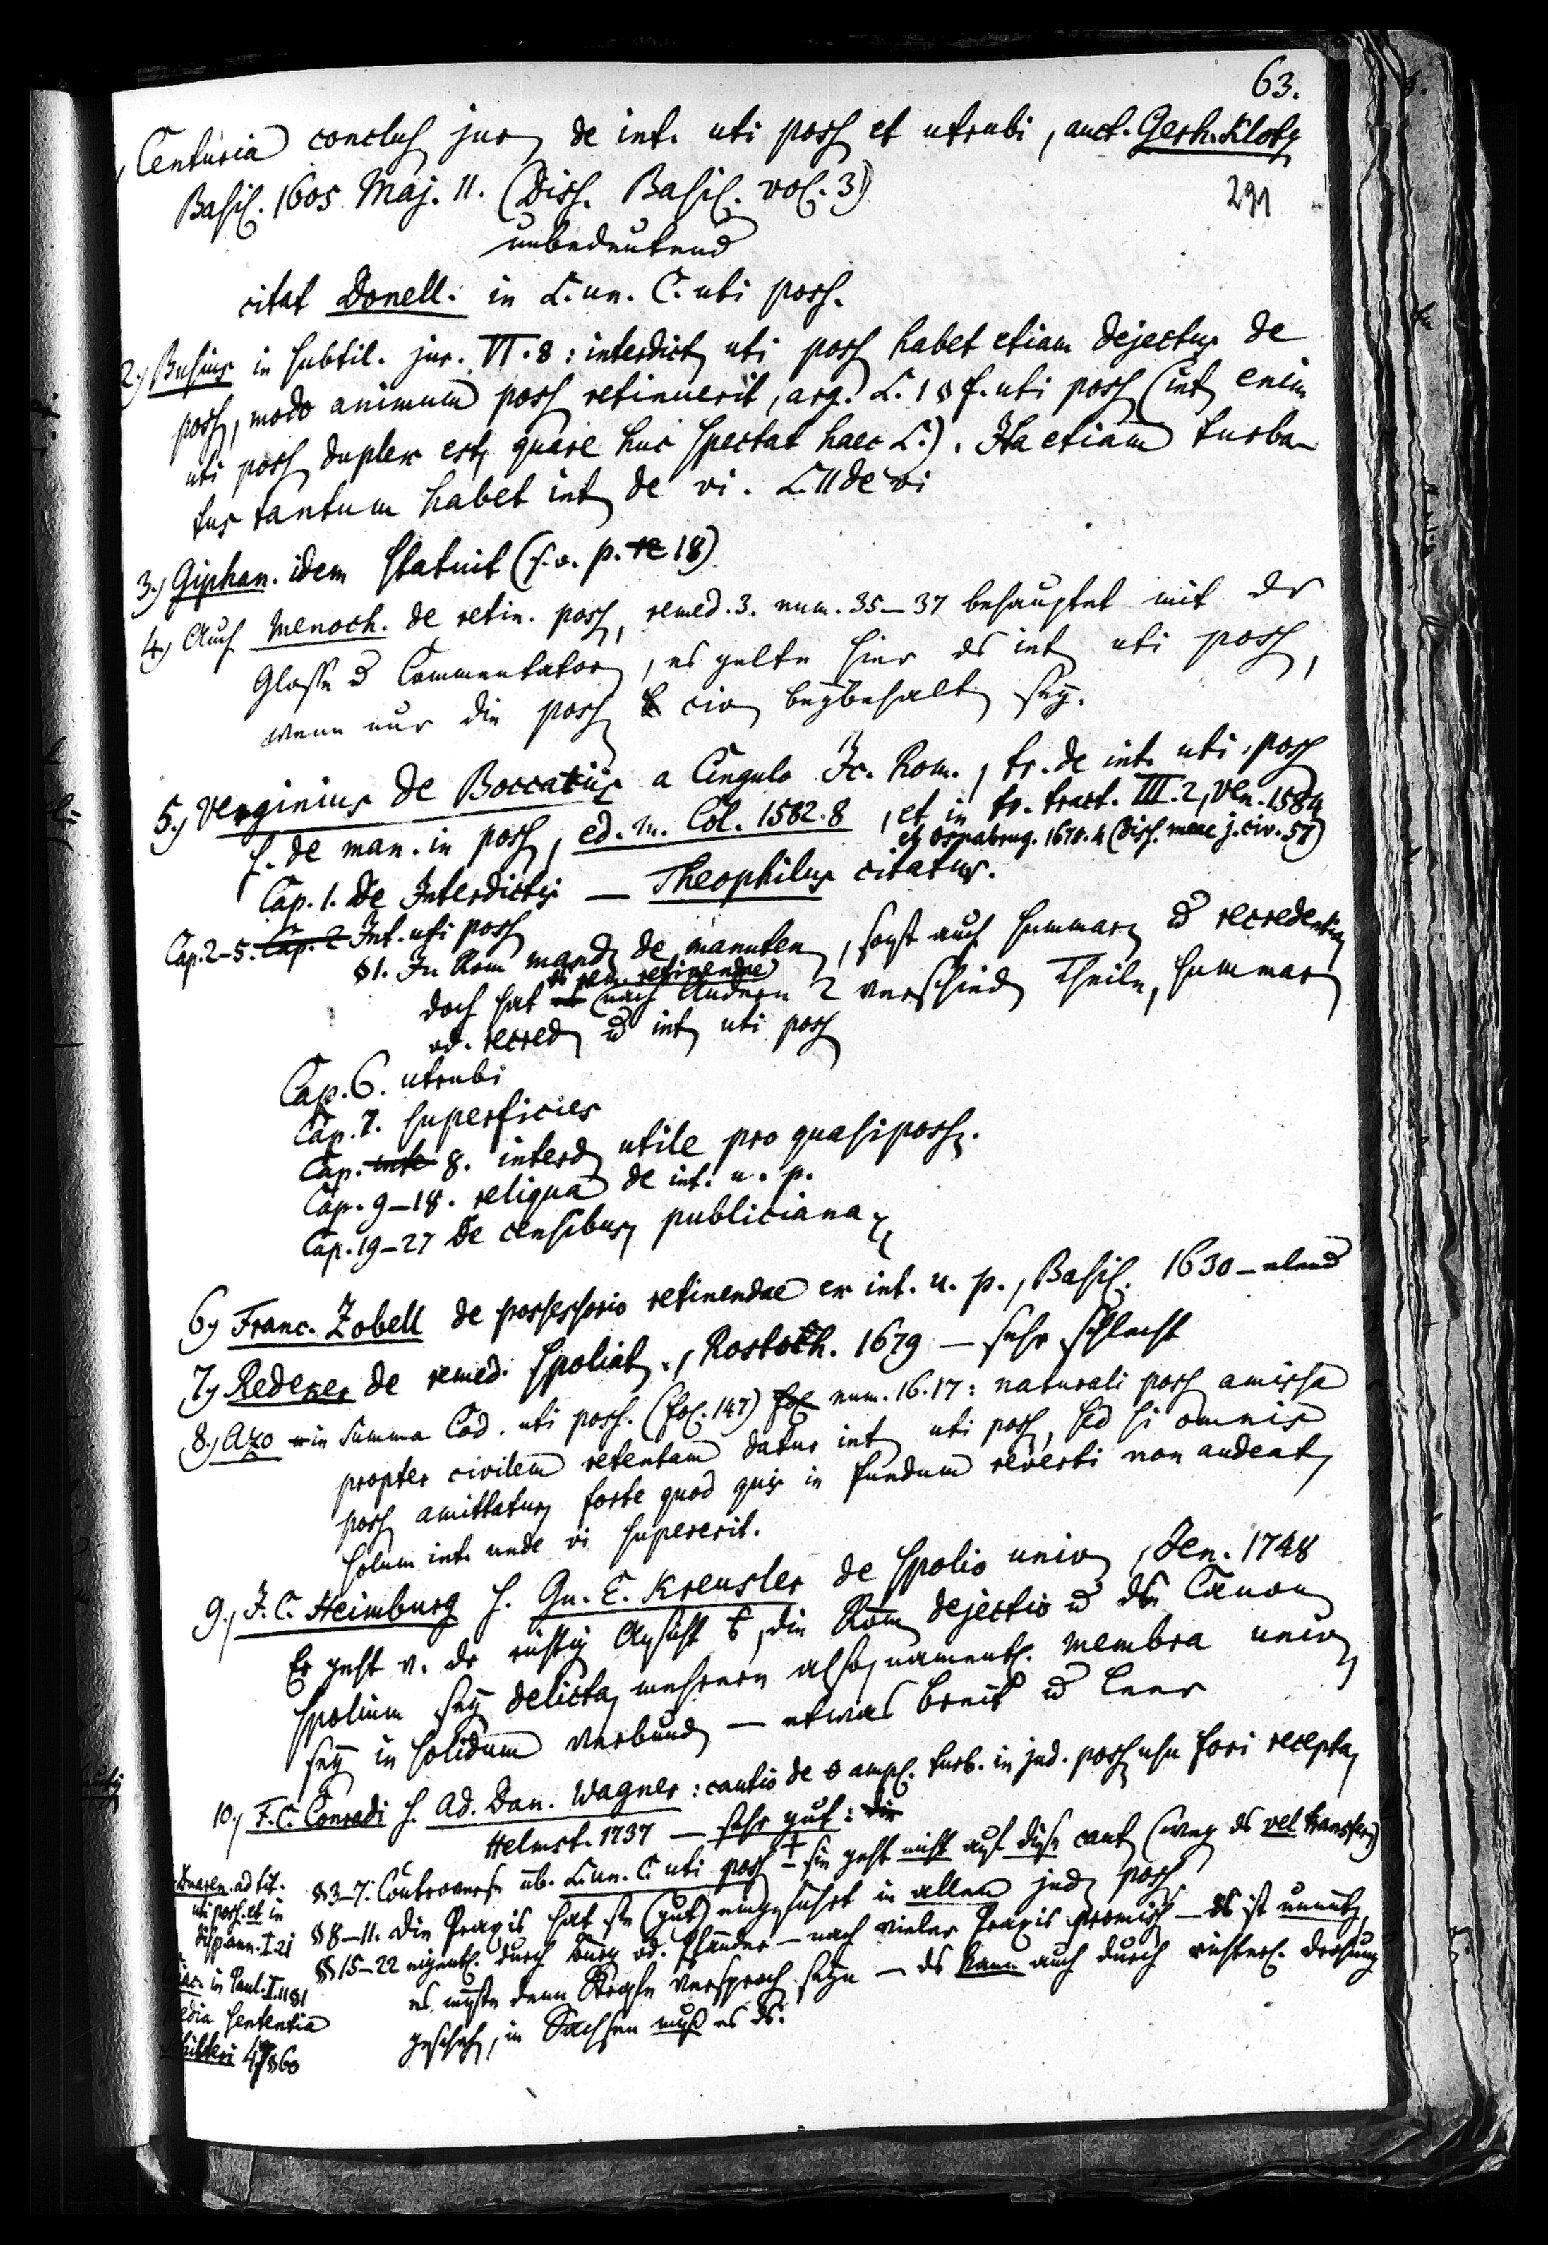 63.
Centuria conclus jur de int. uti poss et utrubi, auct. Gerh. Klotz
Basil. 1605 Maj. 11. (Diss. Basil. vol. 3)
291
unbedeutend
citat Donell. in L. un. C. uti poss.
2.) Busius in subtil. jur. VI. 8: interdict uti poss habet etiam dejectus de
poss, modo animum poss retinuerit, arg. L. 1 § f. uti poss (int enim
uti poss duplex est, quare huc spectat haec L.). Ita etiam turba-
tus tantum habet int de vi. L. 11 de vi
3.) Giphan. idem statuit (s. o. p. 18)
4.) Auch Menoch. de retin. poss, remed. 3. num. 35–37 behauptet mit der
Glosse u Commentator, es gelte hier ds int uti poss,
wenn nur die poss civ beybehalt sey.
5.) Verginius de Boccatiis a Cingulo Jc. Rom., tr. de int. uti poss
s. de man. in poss, ed. m. Col. 1582. 8, et in tr. tract. III. 2, Ven. 1584
et Osnabrug. 1678. 4 (Diss. meae j. civ. 57)
Cap. 1. De Interdictis — Theophilus citatus.
Cap. 2–5. Cap. 2 Int. uti poss
§ 1. In Rom mand de manuten, sonst auch summar u recredentia
ds rem. retinendae
doch hat (nach Andern 2 verschied Theile, summar
od. recred u int uti poss
Cap. 6. utrubi
Cap. 7. superficies
Cap. inte 8. interd utile pro quasiposs.
Cap. 9–18. reliqua de int. u. p.
Cap. 19–27 de censibus, publiciana
6.) Franc. Zobell de possessorio retinendae ex int. u. p., Basil. 1630 – elend
7.) Redeker de remed. spoliat., Rostoch. 1679 — sehr schlecht
8.) Azo in Summa Cod. uti poss. (fol. 147) fol num. 16. 17: naturali poss amissa
propter civilem retentam datur int uti poss, sed si omnis
poss amittatur, forte quod quis in fundum reverti non audeat,
solum int. unde vi supererit.
9.) J. C. Heimburg s. Gu. E. Kreusler de spolio univ, Jen. 1748
Er geht v. der richtig Ansicht, die Röm dejectio u ds Canon
spolium sey delicta, mehrere also, namentl. membra univ,
sey in solidum verbund — etwas breit u leer
10.) F. C. Conradi s. Ad. Dan. Wagner: cautio de ampl. turb. in jud. poss usu fori recepta,
Helmst. 1737 — sehr gut: die
§ 3–7. Controverse üb. L. un. C. uti poss – sie geht nicht auf diese caut (weg ds vel transfer)
§ 8–11. Die Praxis hat sie (gut) eingeführt in allen jud poss
§ 15–22 eigentl. durch Bürg od. Pfänder — nach vieler Praxis promiss — ds ist unnütz,
es müßte denn Strafe versproch seyn — ds kann auch durch richterl. Drohung
gescheh, in Sachsen muß es ds.
Duaren. ad tit.
uti poss. et in
disp. ann. I. 21
Cujac. in Paul. I. 1181
media sententia
Schilteri 47 § 60